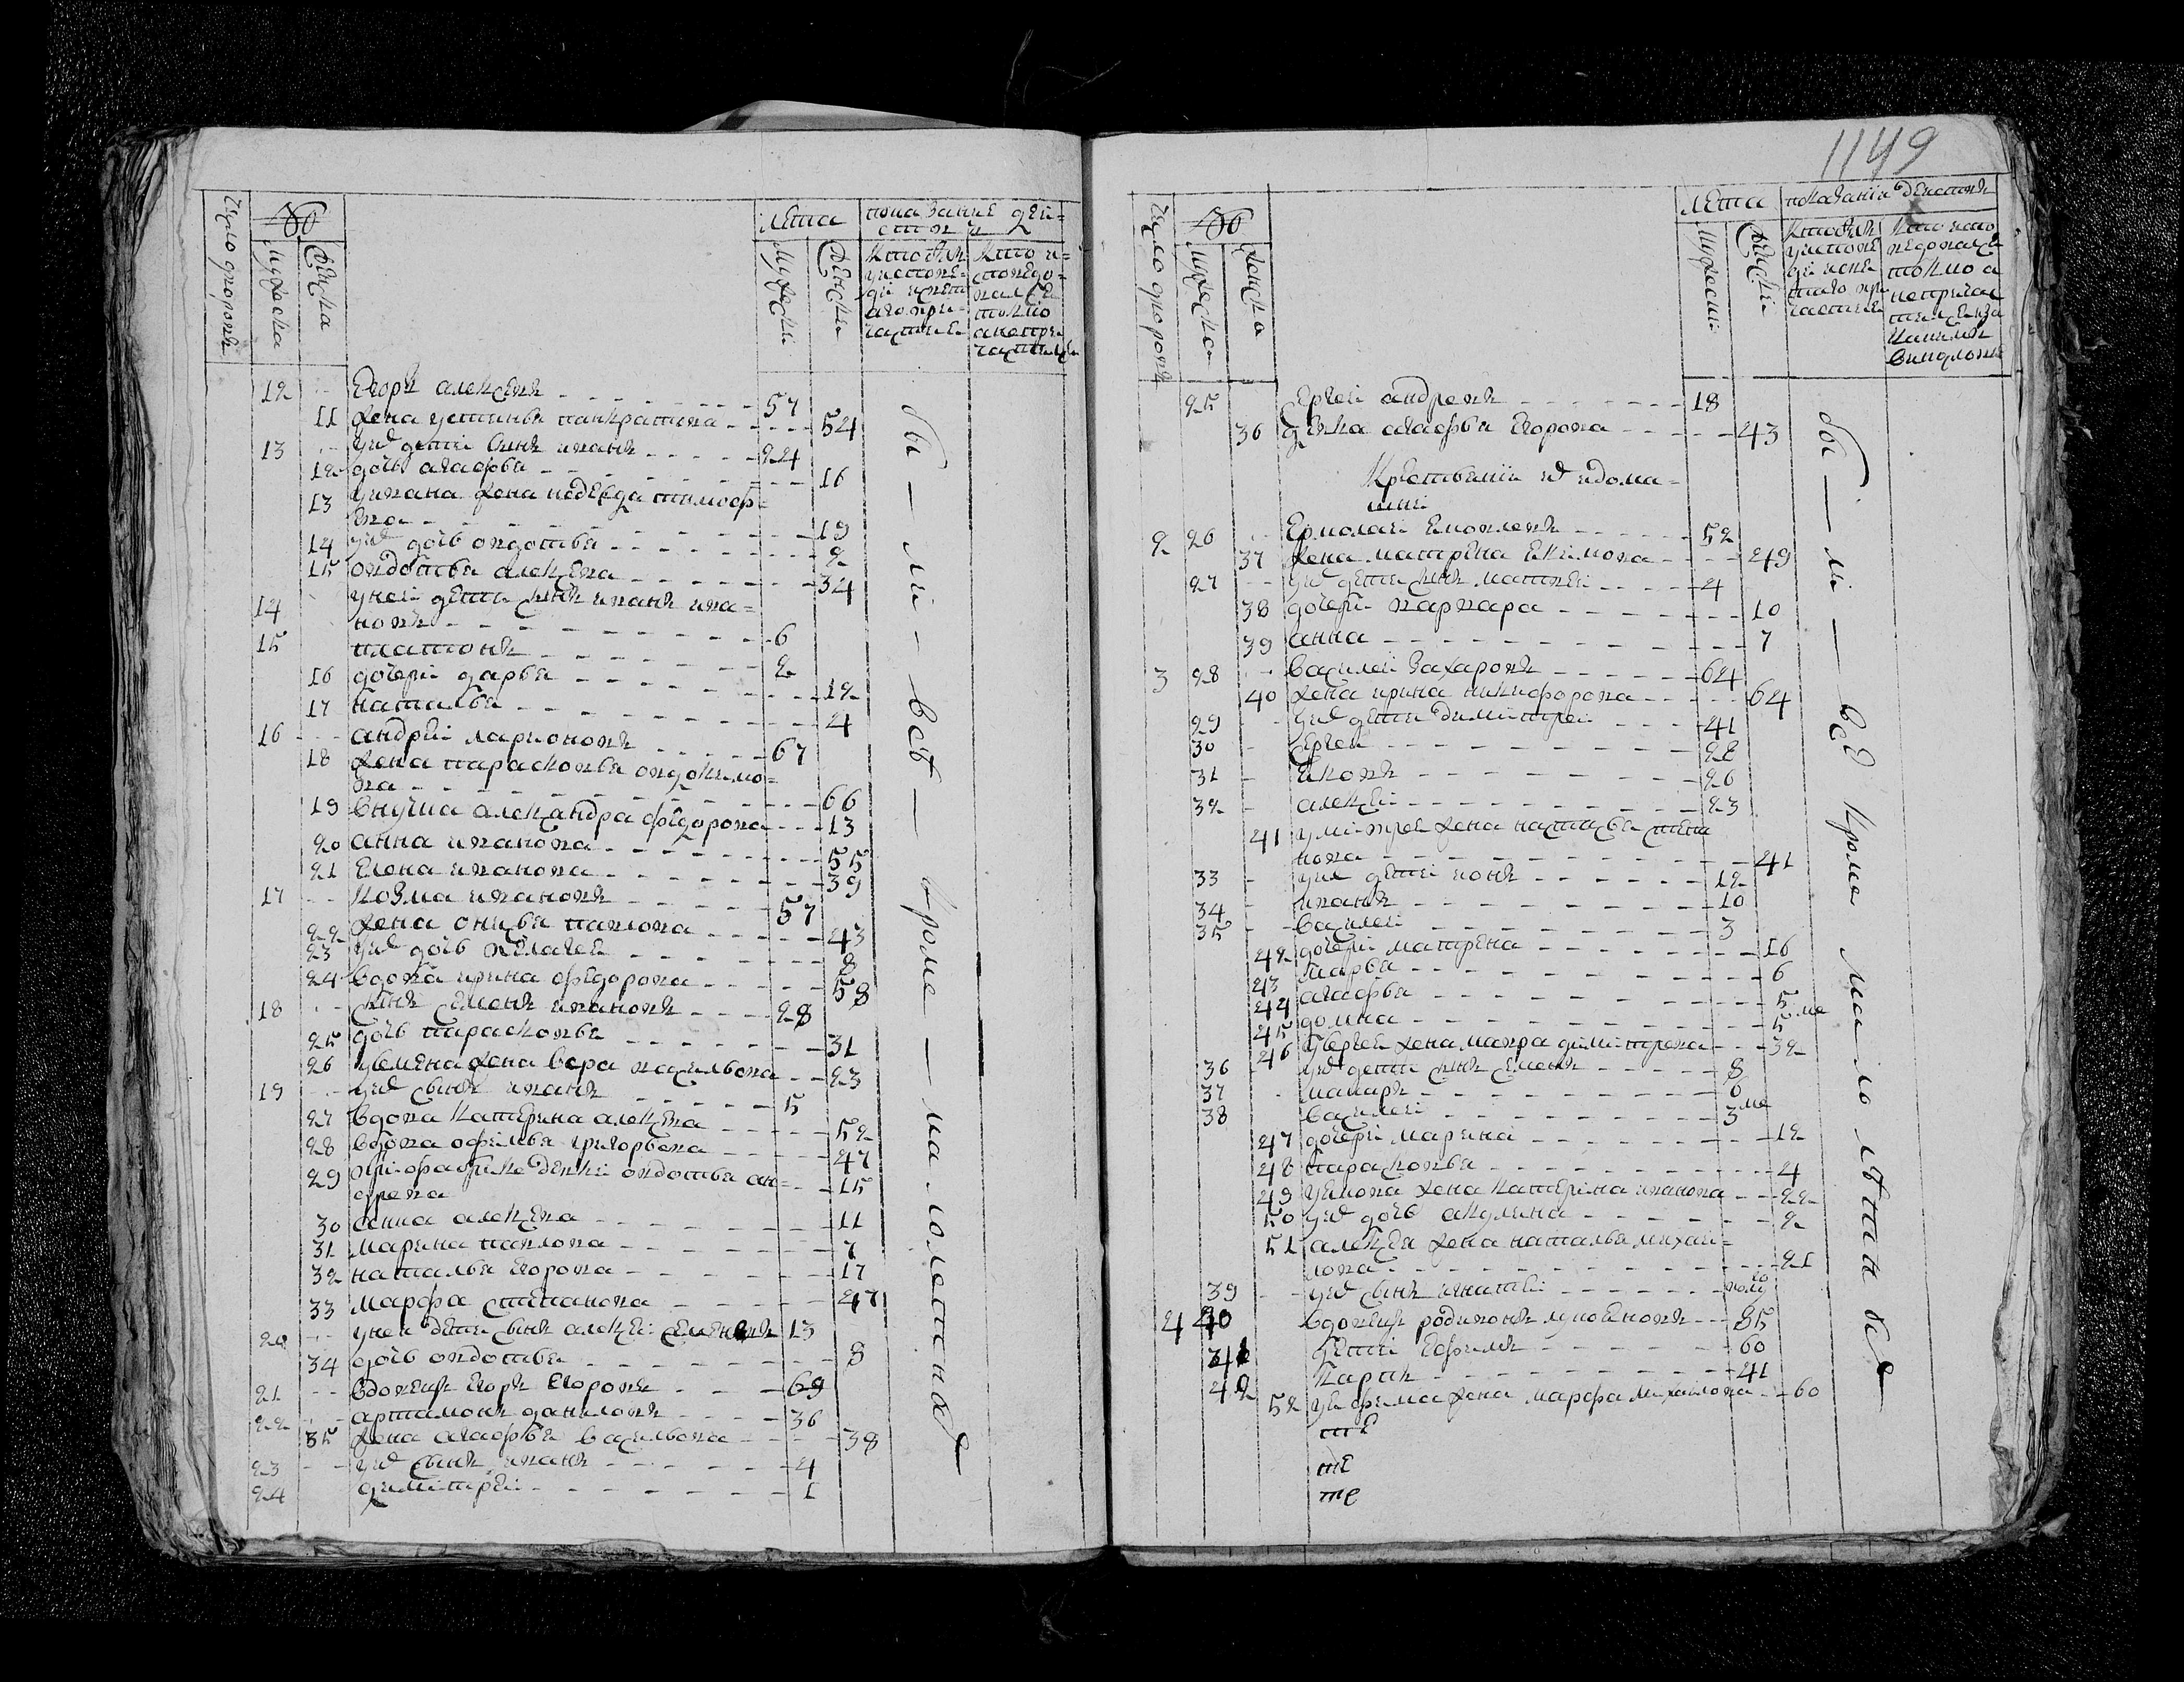 Число дворовъ
№
мужеска
женска
лета
мужески
женски
показание дей=
ствия
12 Егоръ алексеевъ 57
11 жена устинья панкратива 54
13 унихъ детей сынъ иванъ 24
12 дочь агафья 16
13 уивана жена надежда тимоф=
ева 19
14 унихъ дочь овдотья 2
15 овдотья алексева 34
14 унеи дети сынъ иванъ ива=
новъ 6
15 платонъ 2
16 дочери дарья 12
17 наталья 4
16 андреи ларионовъ 67
18 жена парасковья овдокимо=
ва 66
19 внучка александра федорова 13
20 анна иванова 55
21 елена иванова 39
17 козма ивановъ 57
22 жена онисья павлова 43
23 унихъ дочь пелагея 8
24 вдова ирина федорова 58
18 сынъ семенъ ивановъ 28
25 дочь парасковья 31
26 усемена жена вера васильева 23
19 унихъ сынъ иванъ 5
27 вдова катерина алексева 52
28 вдова офимья григорьева 47
29 прифабрике девки овдотья ан=
древа 15
30 анна алексева 11
31 марина павлова 7
32 наталья егорова 17
33 марфа степанова 47
20 унеи дети сынъ алексеи семеновъ 13
34 дочь овдотья 8
21 вдовецъ егоръ егоровъ 69
22 артамонъ даниловъ 36
35 жена агафья васильева 38
23 унихъ сынъ иванъ 4
24 димитреи 1
бы — ли — всѣ — кроме — малолетныхъ
1149
Число дворовъ
№
мужеска
женска
лета
мужески
женски
показания действия
25 Сергеи андреевъ 18
36 девка агафья егорова 43
Крестьянии ихъ идома=
шнии
2 26 Ермолаи Яковлевъ 52
37 жена матрена екимова 49
27 унихъ дети сынъ матвеи 4
38 дочери варвара 10
39 анна 7
3 28 василеи захаровъ 64
40 жена ирина никифорова 64
29 унихъ дети димитреи 41
30 сергеи 28
31 яковъ 26
32 алексеи 23
41 умитрея жена наталья степа
нова 41
33 унихъ детей ионъ 12
34 иванъ 10
35 василеи 3
42 дочери матрена 16
43 марья 6
44 агафья 5
45 домна 5 ме
46 усергея жена мавра димитрева 32
36 унихъ дети сынъ семенъ 8
37 макаръ 6
38 василеи 3 ме
47 дочери марина 12
48 парасковья 4
49 уякова жена катерина иванова 22
50 унихъ дочь акулина 2
51 алексея жена наталья михаи=
лова 21
39 унихъ сынъ игнатеи полу
4 40 вдовецъ родивонъ лукояновъ 85
41 детей ефимъ 60
42 карпъ 41
52 уефима жена марфа михаилова 60
те
те
те
бы — ли — всѣ кроме малолѣтныхъ